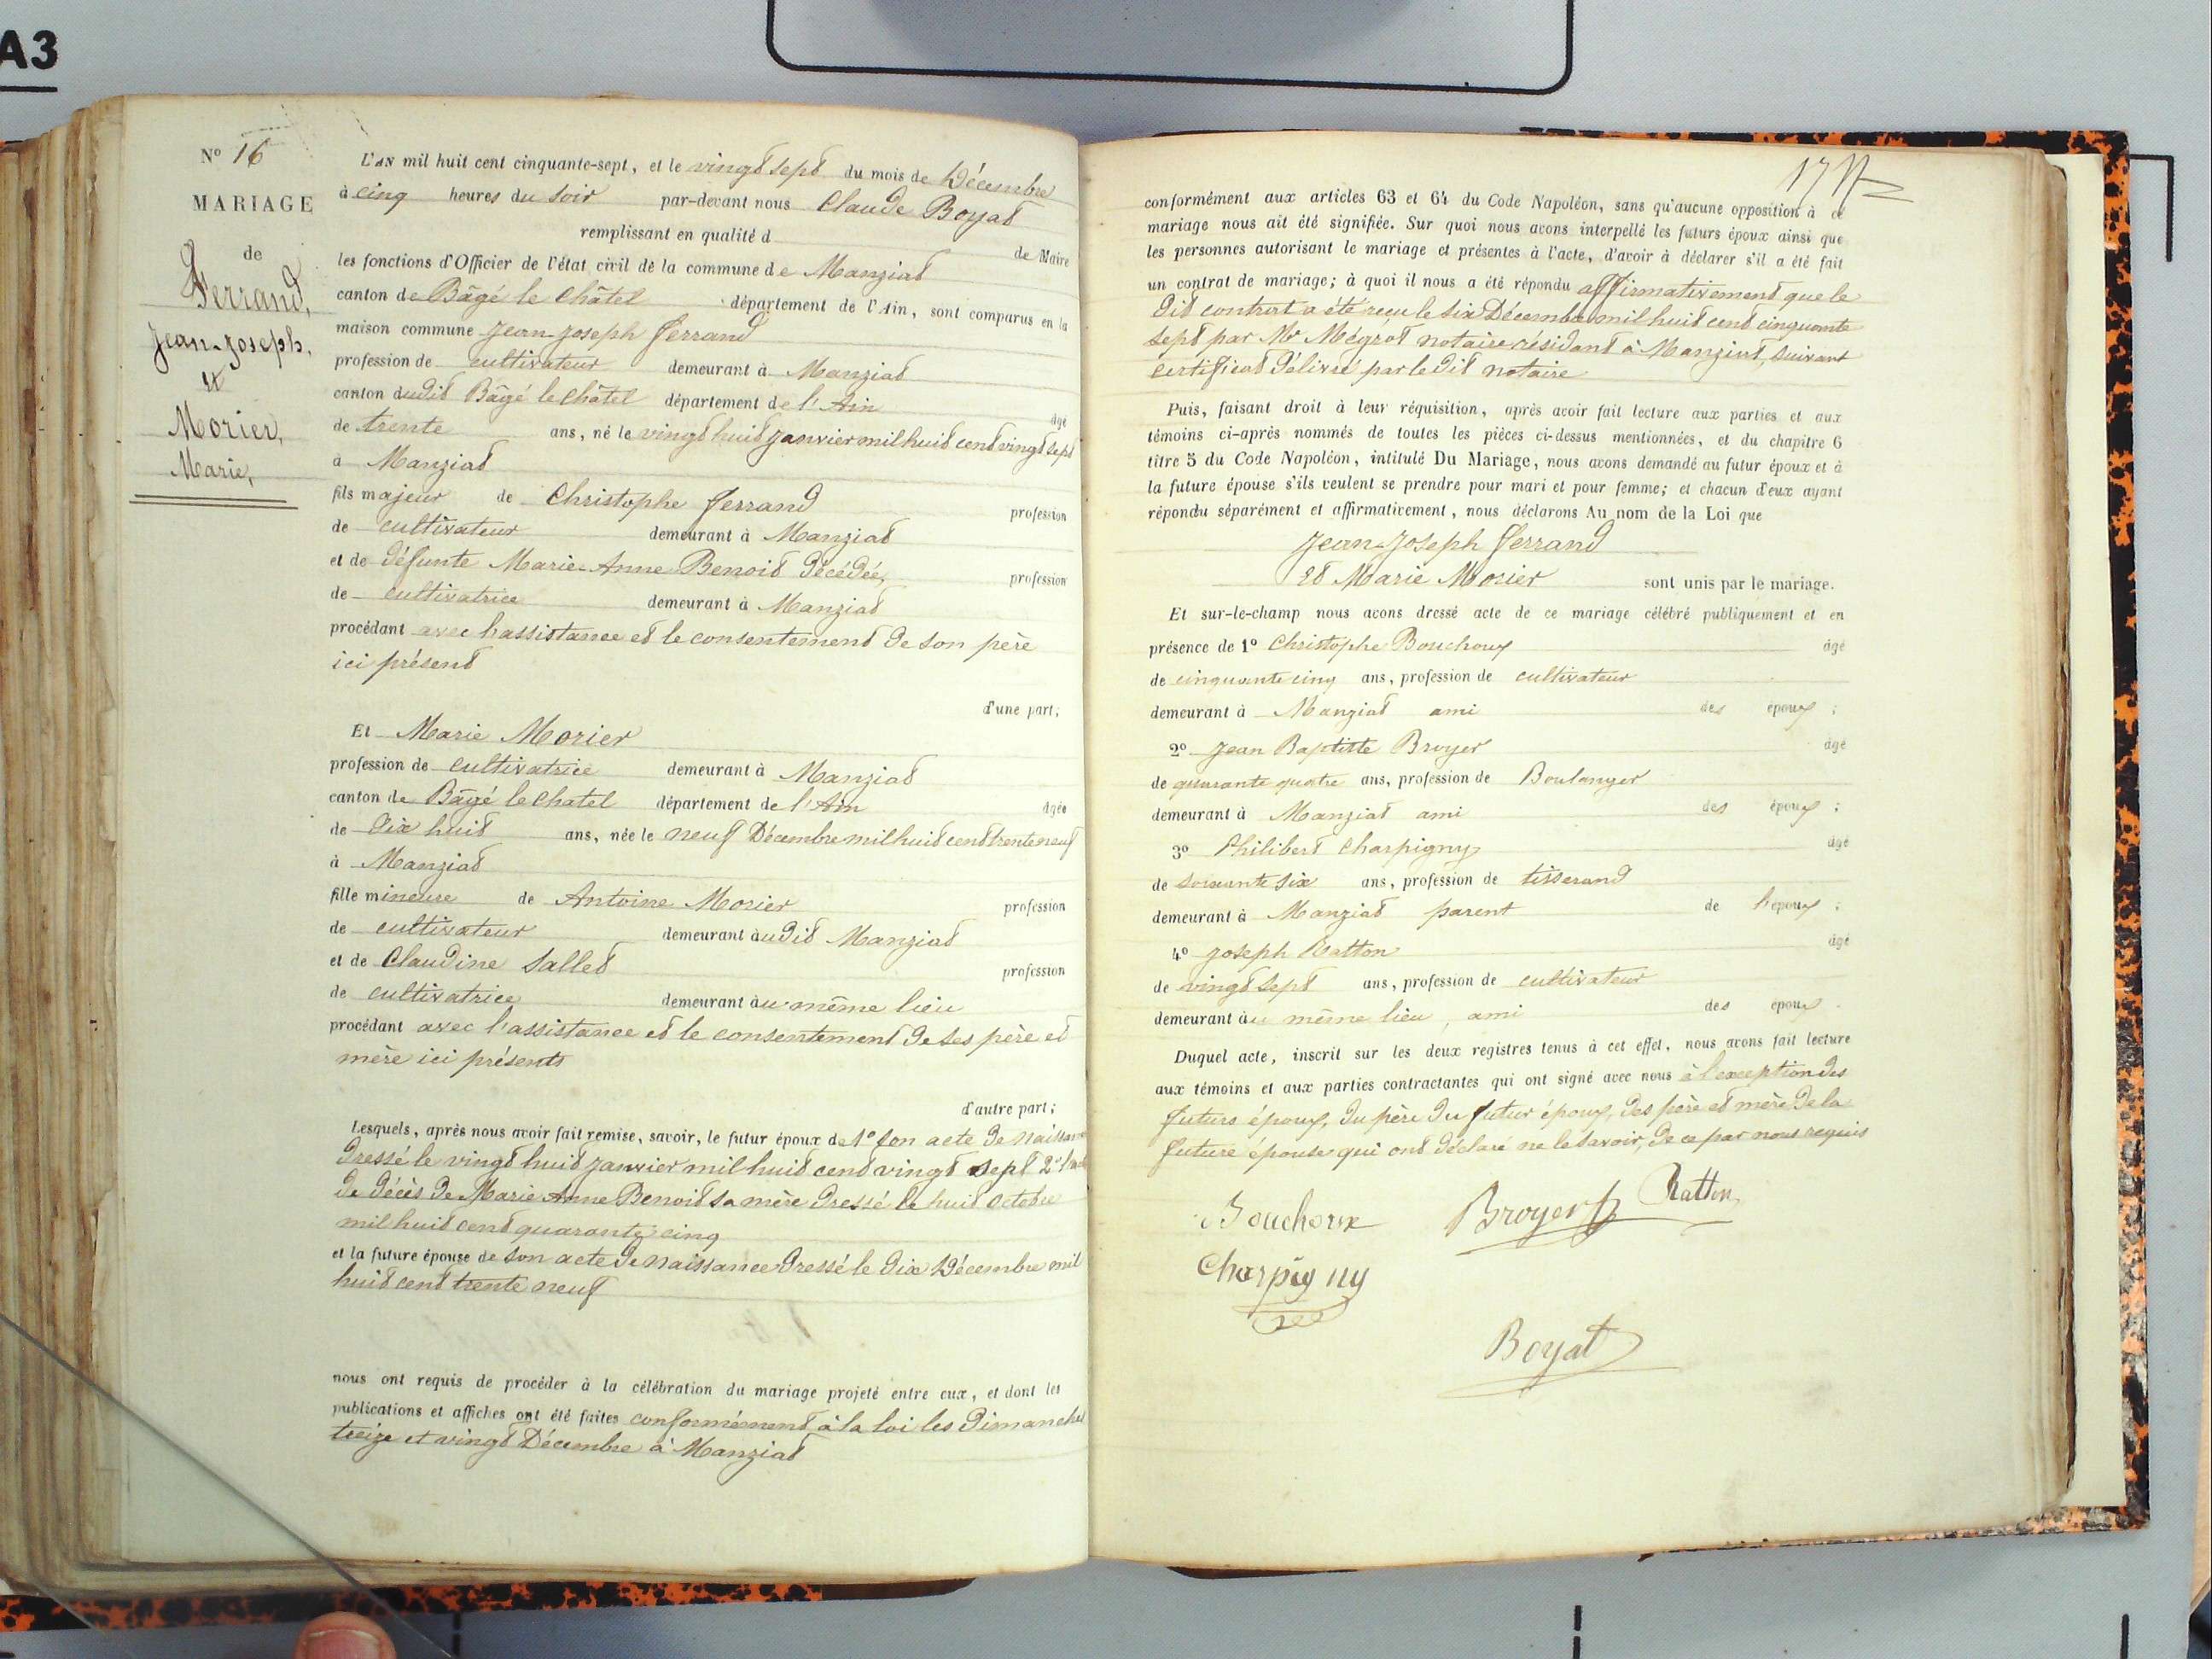 A3
N° 16
MARIAGE
de
Ferrand,
Jean-Joseph,
et
Morier,
Marie,
L'AN mil huit cent cinquante-sept, et le vingt sept du mois de Décembre
à cinq heures du soir par-devant nous Claude Boyat
remplissant en qualité d de Maire
les fonctions d'Officier de l'état civil de la commune de Manziat
canton de Bâgé le Châtel département de l'Ain, sont comparus en la
maison commune Jean-Joseph Ferrand
profession de cultivateur demeurant à Manziat
canton dudit Bâgé le Châtel département de l'Ain âgé
de trente ans, né le vingt huit Janvier mil huit cent vingt sept
à Manziat
fils majeur de Christophe Ferrand profession
de cultivateur demeurant à Manziat
et de défunte Marie-Anne Benoit décédée, profession
de cultivatrice demeurant à Manziat
procédant avec l'assistance et le consentement de son père
ici présent
d'une part;
Et Marie Morier
profession de cultivatrice demeurant à Manziat
canton de Bâgé le Chatel département de l'Ain âgée
de dix huit ans, née le neuf Décembre mil huit cent trente neuf
à Manziat
fille mineure de Antoine Morier profession
de cultivateur demeurant àudit Manziat
et de Claudine Sallet profession
de cultivatrice demeurant àu même lieu
procédant avec l'assistance et le consentement de ses père et
mère ici présents
d'autre part;
Lesquels, après nous avoir fait remise, savoir, le futur époux de 1° son acte de naissance
dressé le vingt huit Janvier mil huit cent vingt sept 2° l'acte
de décès de Marie Anne Benoit sa mère dressé le huit Octobre
mil huit cent quarante cinq
et la future épouse de son acte de naissance dressé le dix Décembre mil
huit cent trente neuf
nous ont requis de procéder à la célébration du mariage projeté entre eux, et dont les
publications et affiches ont été faites conformément à la loi les dimanches
treize et vingt Décembre à Manziat
17
conformément aux articles 63 et 64 du Code Napoléon, sans qu'aucune opposition à ce
mariage nous ait été signifiée. Sur quoi nous avons interpellé les futurs époux ainsi que
les personnes autorisant le mariage et présentes à l'acte, d'avoir à déclarer s'il a été fait
un contrat de mariage; à quoi il nous a été répondu affirmativement que le
dit contrat a été reçu le six Décembre mil huit cent cinquante
sept par Mr Mégrot notaire résidant à Manziat, suivant
certificat délivré par le dit notaire
Puis, faisant droit à leur réquisition, après avoir fait lecture aux parties et aux
témoins ci-après nommés de toutes les pièces ci-dessus mentionnées, et du chapitre 6
titre 5 du Code Napoléon, intitulé Du Mariage, nous avons demandé au futur époux et à
la future épouse s'ils veulent se prendre pour mari et pour femme; et chacun d'eux ayant
répondu séparément et affirmativement, nous déclarons Au nom de la Loi que
Jean-Joseph Ferrand
Et Marie Morier sont unis par le mariage.
Et sur-le-champ nous avons dressé acte de ce mariage célébré publiquement et en
présence de 1° Christophe Bouchoux âgé
de cinquante cinq ans, profession de cultivateur
demeurant à Manziat ami des époux ;
2° Jean Baptiste Broyer âgé
de quarante quatre ans, profession de Boulanger
demeurant à Manziat ami des époux ;
3° Philibert Charpigny âgé
de soixante six ans, profession de tisserand
demeurant à Manziat parent de l'époux ;
4° Joseph Ratton âgé
de vingt sept ans, profession de cultivateur
demeurant àu même lieu, ami des époux
Duquel acte, inscrit sur les deux registres tenus à cet effet, nous avons fait lecture
aux témoins et aux parties contractantes qui ont signé avec nous à l'exception des
futurs époux, du père du futur époux, des père et mère de la
future épouse qui ont déclaré ne le savoir, de ce par nous requis
Bouchoux Broyer Ratton
Charpigny
Boyat